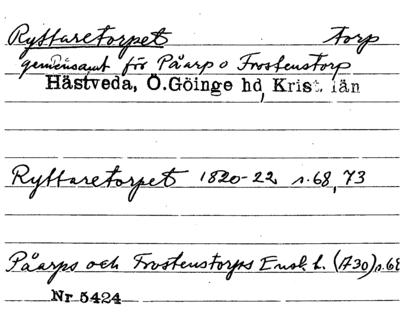 Ryttaretorpet torp
gemensamt för Påarp o Frostenstorp
Hästveda, Ö.Göinge hd, Krist. län
Ryttaretorpet 1820-22 s.68, 73
Påarps och Frostenstorps Ensk. h. (A30) s.68
Nr 5424